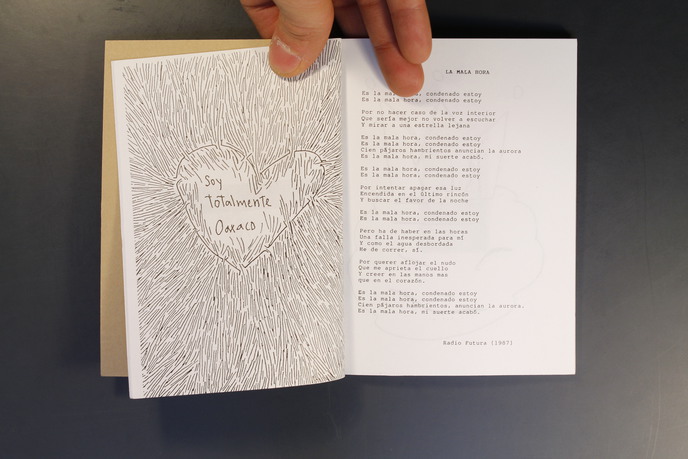 Soy
Totalmente
Oaxaco
LA MALA HORA
Es la mala hora, condenado estoy
Es la mala hora, condenado estoy
Por no hacer caso de la voz interior
Que sería mejor no volver a escuchar
Y mirar a una estrella lejana
Es la mala hora, condenado estoy
Es la mala hora, condenado estoy
Cien pájaros hambrientos anuncian la aurora
Es la mala hora, mi suerte acabó.
Es la mala hora, condenado estoy
Es la mala hora, condenado estoy
Por intentar apagar esa luz
Encendida en el último rincón
Y buscar el favor de la noche
Es la mala hora, condenado estoy
Es la mala hora, condenado estoy
Pero ha de haber en las horas
Una falla inesperada para mí
Y como el agua desbordada
He de correr, sí.
Por querer aflojar el nudo
Que me aprieta el cuello
Y creer en las manos mas
que en el corazón.
Es la mala hora, condenado estoy
Es la mala hora, condenado estoy
Cien pájaros hambrientos, anuncian la aurora.
Es la mala hora, mi suerte acabó.
Radio Futura [1987]